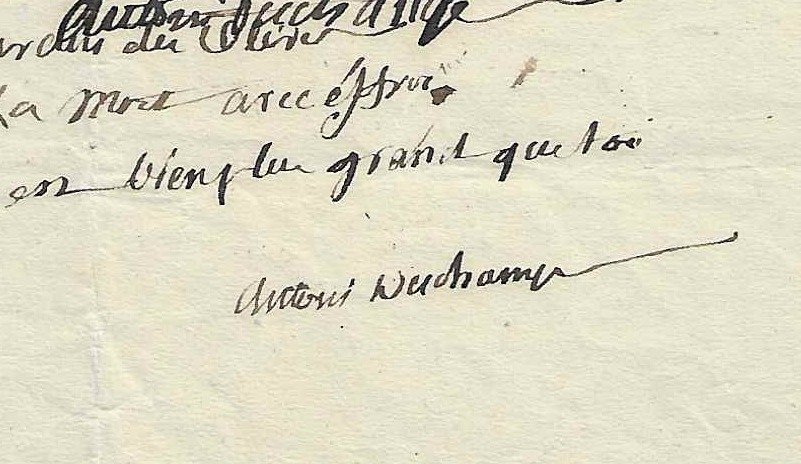 Antoni Deschamps
jardin des Oliviers
la mort avec effroi.
est bien plus grand que toi
Antoni Deschamps